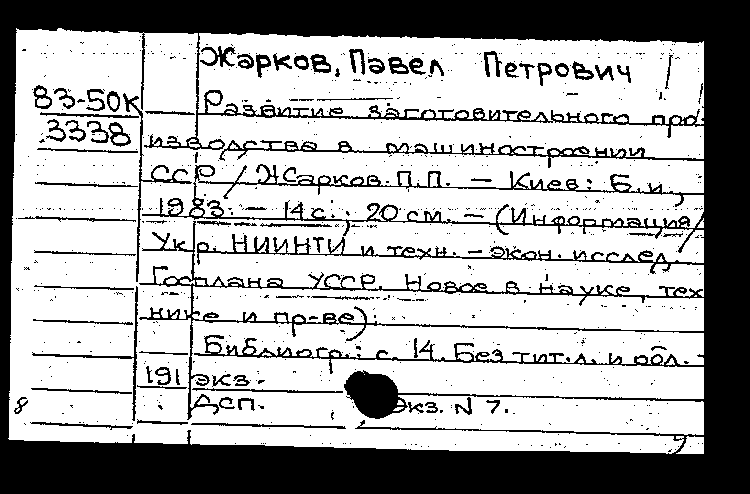 Жарков, Павел Петрович
83-50к Развитие заготовительного про-
3338 изводства в машиностроении
ССР / Жарков П.П. — Киев: Б.и.,
1983. — 14 с.; 20 см. — (Информация /
Укр. НИИНТИ и техн. - экон. исслед.
Госплана УССР. Новое в науке, тех
нике и пр-ве).
Библиогр.: с. 14. Без тит.л. и обл.
191 экз.
8 ДСП. Экз. N 7.
9